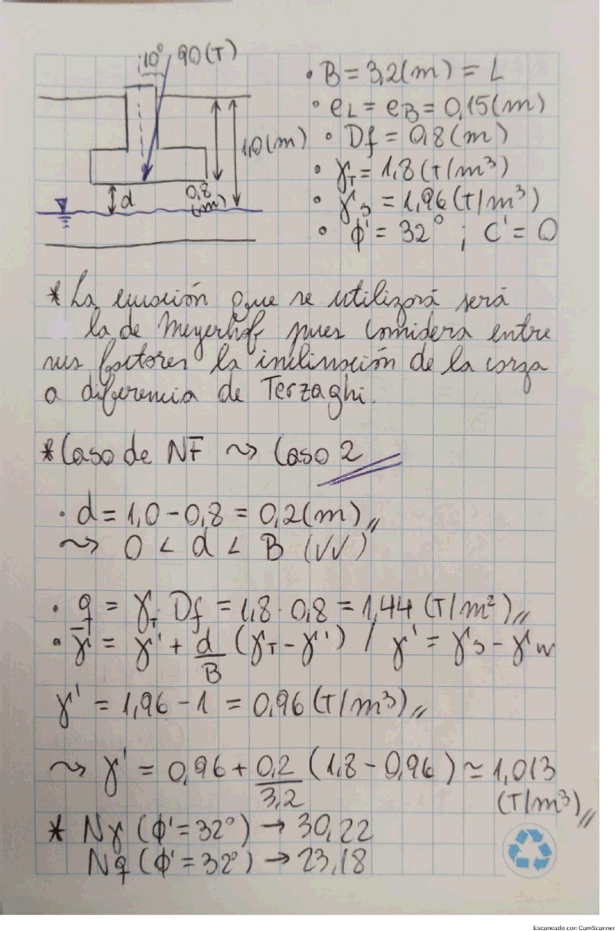 10° 90(T)
1,0(m)
d
0,8
(m)
• B = 3,2(m) = L
• eL = eB = 0,15(m)
• Df = 0,8(m)
• γT = 1,8(T/m³)
• γs = 1,96(T/m³)
• ϕ' = 32° ; C' = 0
* La ecuación que se utilizará será
la de Meyerhof pues considera entre
sus factores la inclinación de la carga
a diferencia de Terzaghi.
* Caso de NF ~> Caso 2
• d = 1,0 - 0,8 = 0,2(m)
~> 0 < d < B (√√)
• q = γT Df = 1,8 · 0,8 = 1,44 (T/m²)
• γ̄ = γ' + d/B (γT - γ') / γ' = γs - γw
γ' = 1,96 - 1 = 0,96 (T/m³)
~> γ' = 0,96 + 0,2/3,2 (1,8 - 0,96) ≃ 1,013
(T/m³)
* Nγ (ϕ' = 32°) → 30,22
Nq (ϕ' = 32°) → 23,18
Escaneado con CamScanner